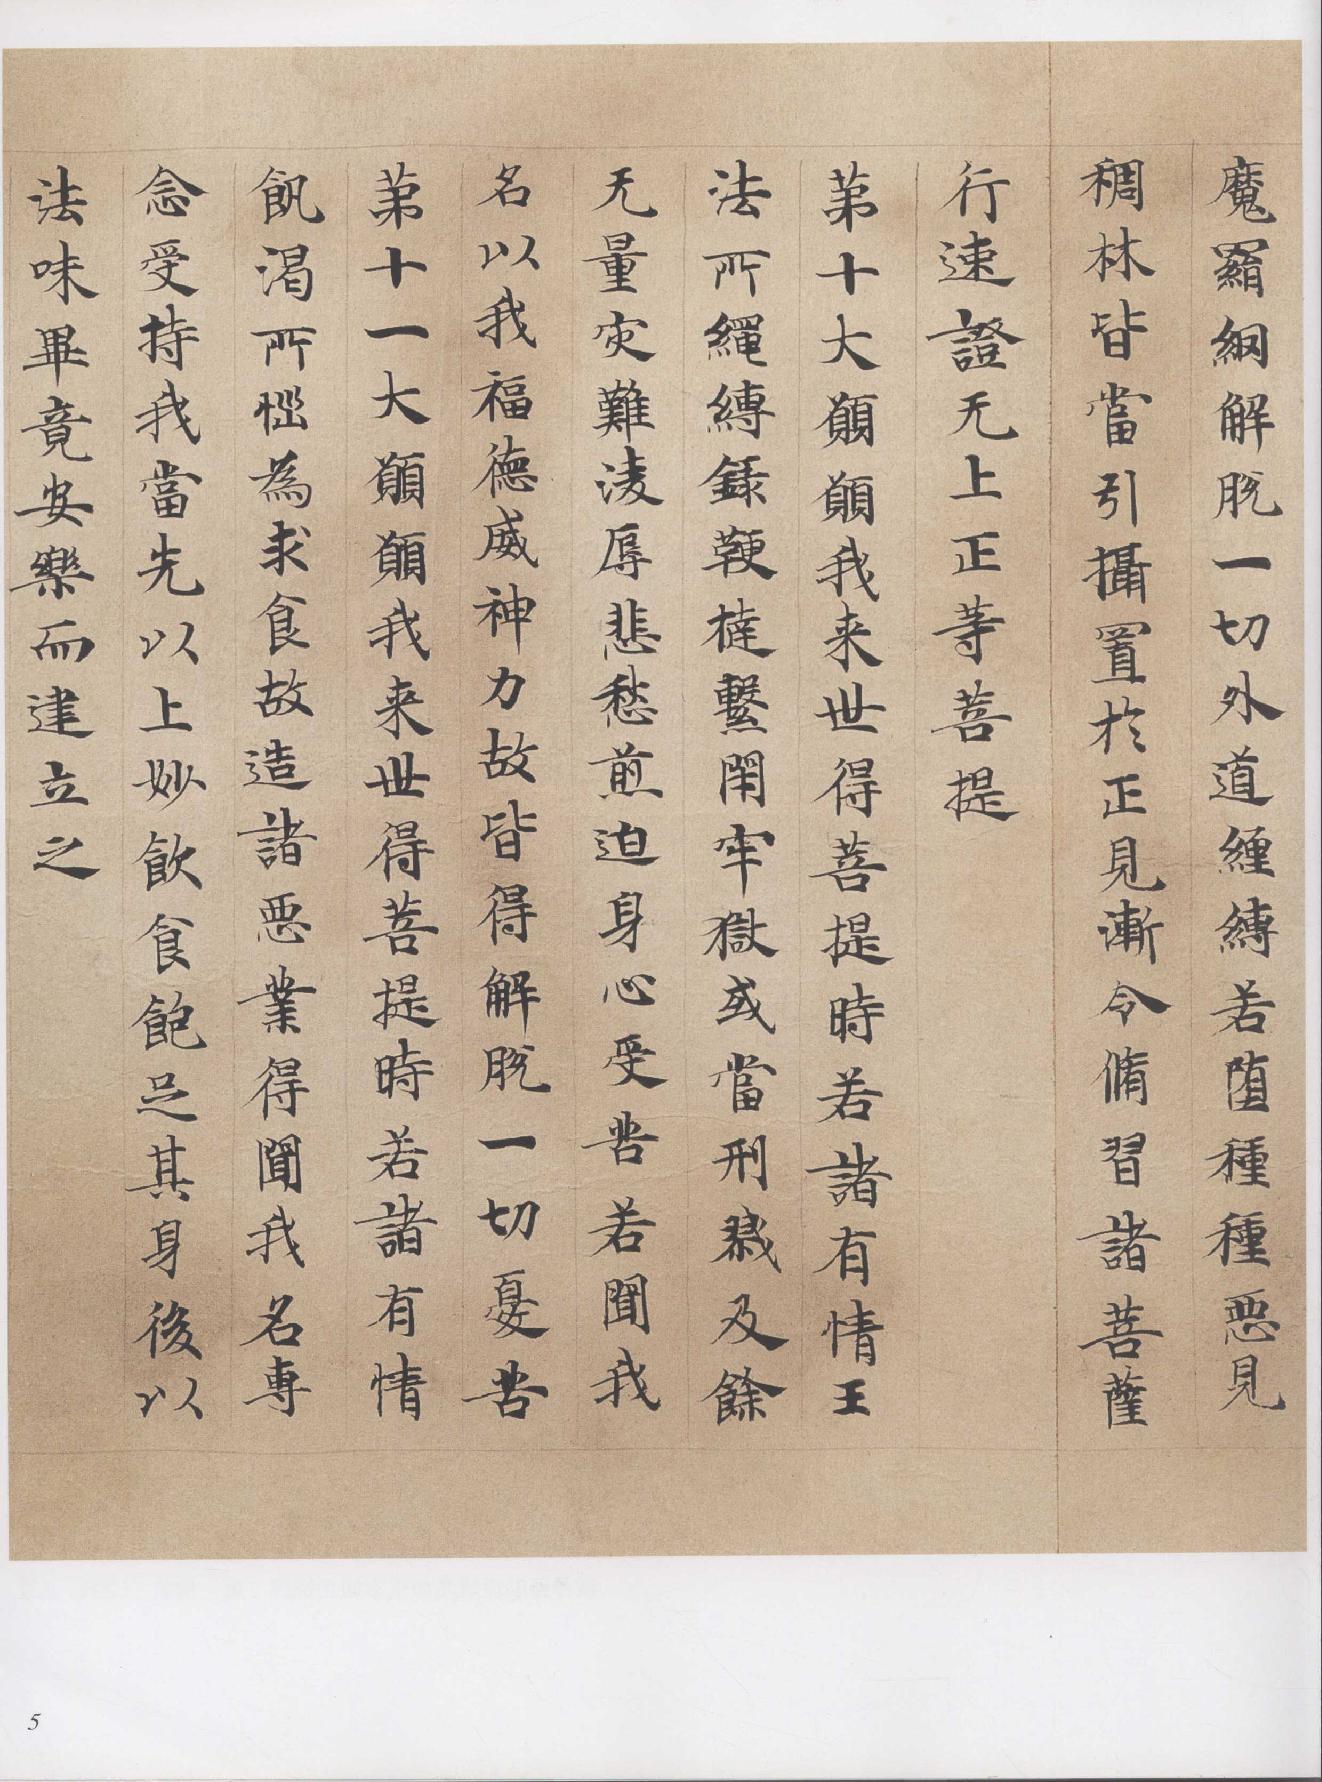 魔羂網解脫一切外道纏縛若墮種種惡見
稠林皆當引攝置於正見漸令脩習諸菩薩
行速證无上正等菩提
第十大願願我来世得菩提時若諸有情王
法所繩縛録鞭撻繫閇牢獄或當刑戮及餘
无量灾難淩辱悲愁煎迫身心受苦若聞我
名以我福德威神力故皆得解脫一切憂苦
第十一大願願我来世得菩提時若諸有情
飢渴所惱為求食故造諸惡業得聞我名專
念受持我當先以上妙飲食飽足其身後以
法味畢竟安樂而建立之
5